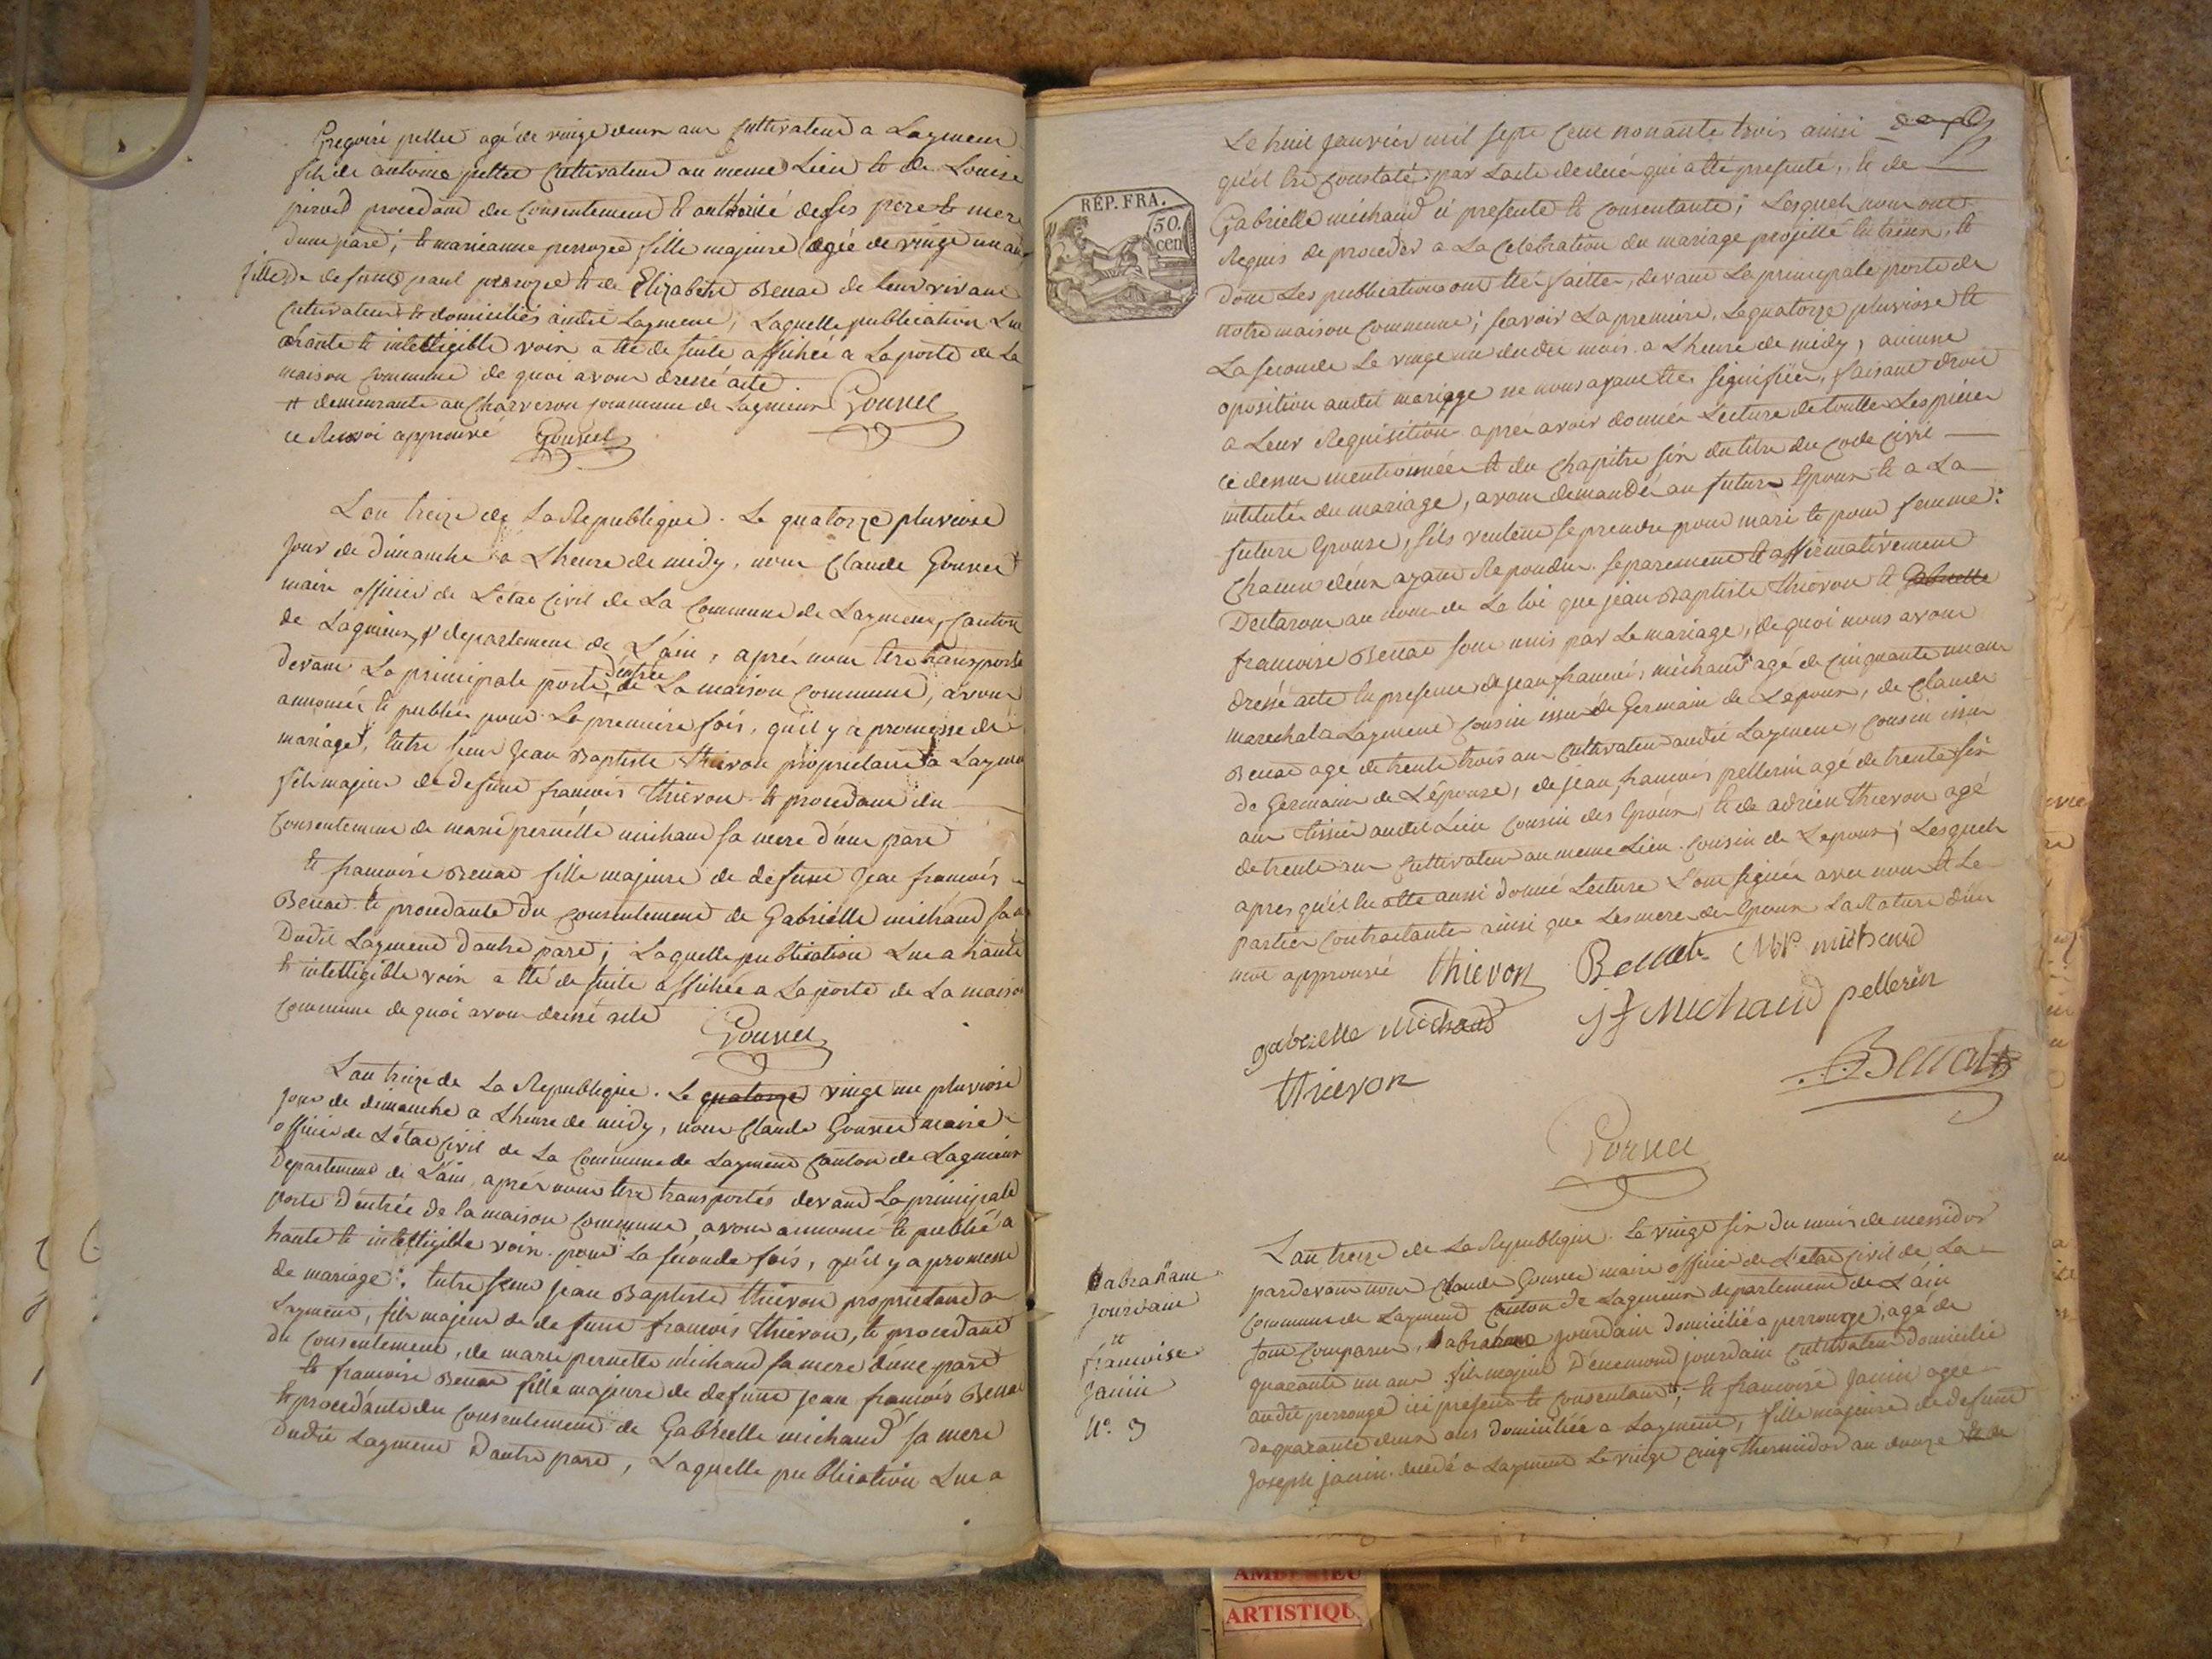 Gregoire pellet agé de vingt deux ans Cultivateur a Lagment
fils de antoine pellet Cultivateur au meme Lieu et de Louise
procedant du Consentement et authorité de ses pere et mere
dune part; et marieanne perrozet fille majeure agée de vingt un ans
fille de defunts paul perrozet et de Elizabeth Benat de leur vivant
Cultivateurs et domiciliés audit Lagment, Laquelle publication Lue
a haute et intelligible voix a été de suite affichée a La porte de La
maison Commune de quoi avons dressé acte.
et demeurante au Charveron commune de Lagnieux Gourcet
ce Renvoi approuvé Gourcet
L'an treize de La Republique. Le quatorze pluviose
jour de dimanche a L'heure de midy, nous Claude Gourcet
maire officier de L'état Civil de La Commune de Lagment, Canton
de Lagnieux, departement de L'ain, aprés nous etre transporté
devant La principale porte d'entrée de La maison Commune, avons
annoncé et publié pour La premiere fois, qu'il y a promesse de
mariage, entre sieur Jean Baptiste thievon propriétaire a Lagment
fils majeur de defunt francois thievon et procedant du
Consentement de marie pernette michaud sa mere d'une part
et francoise Benat fille majeure de defunt Jean francois
Benat et procedante du Consentement de Gabrielle michaud sa mere
Dudit Lagment d'autre part; Laquelle publication Lue a haute
et intelligible voix a été de suite affichée a La porte de La maison
Commune de quoi avons dressé acte
Gourcet
L'an treize de La Republique. Le quatorze vingt un pluviose
jour de dimanche a L'heure de midy, nous Claude Gourcet maire
officier de L'état Civil de La Commune de Lagment Canton de Lagnieux
Departement de L'ain, aprés nous etre transportés devant La principale
porte D'entrée de la maison Commune, avons annoncé et publié a
haute et intelligible voix pour La seconde fois, qu'il y a promesse
de mariage, Entre sieur jean Baptiste thievon propriétaire a
Lagment, fils majeur de defunt francois thievon, et procedant
du Consentement, de marie pernette michaud sa mere d'une part
et francoise Benat fille majeure de defunt jean francois Benat
et procedante du Consentement de Gabrielle michaud sa mere
Dudit Lagment D'autre part, Laquelle publication Lue a
RÉP. FRA.
50.
cen
Le huit janvier mil sept Cent nonante trois ainsi
qu'il Est Constaté par L'acte de decés qui a été presenté, et de
Gabrielle michaud ci presente et Consentante; Lesquels nous ont
Requis de proceder a La Celebration du mariage projetté Entr'eux, et
dont Les publications ont été faittes, devant La principale porte de
notre maison Commune; scavoir La premiere, Le quatorze pluviose et
La seconde Le vingt un dudit mois a L'heure de midy, aucune
oposition audit mariage ne nous ayant été signifiée, faisant droit
a Leur Requisition aprés avoir donnée Lecture de toutte Les pieces
ci dessus mentionnées et du Chapitre six du titre du Code Civil
intitulé du mariage, avons demandé au futur Epoux et a La
future Epouse, s'ils veulent se prendre pour mari et pour femme:
Chacun d'eux ayant Repondu separement et affirmativement
Declarons au nom de La loi que jean Baptiste thievon et Gabrielle
francoise Benat sont unis par Le mariage, de quoi nous avons
dressé acte En presence de jean francois michaud agé de Cinquante un ans
marechal a Lagment Cousin issu de Germain de L'epoux, de Claude
Benat agé de trente trois ans Cultivateur audit Lagment, Cousin issu
de Germain de L'épouse, de jean francois pellerin agé de trente six
ans tissier audit Lieu Cousin des Epoux, et de adrien thievon agé
de trente ans Cultivateur au meme Lieu Cousin de L'epoux; Lesquels
apres qu'il En a été aussi donné Lecture L'ont signés avec nous et Les
parties Contractantes ainsi que Les meres des Epoux La Rature d'un
mot approuvé thievon Benat MP michaud
gabrielle michaud J F Michaud pellerin
thievon C Benat
Gourcet
abraham
jourdain
et
francoise
janin
N°. 3
L'an treize de La Republique. Le vingt six du mois de messidor
pardevant nous Claude Gourcet maire officier de L'état Civil de La
Commune de Lagment Canton de Lagnieux departement de L'ain
sont Comparus, abraham jourdain domicilié a perrouge, agé de
quarante un ans fils majeur D'enemond jourdain Cultivateur domicilié
audit perrouge ici present et Consentant; et francoise janin agée
de quarante deux ans domiciliée a Lagment, fille majeure de defunt
Joseph janin decédé a Lagment Le vingt cinq thermidor an douze et de
AMBERIEU
ARTISTIQU